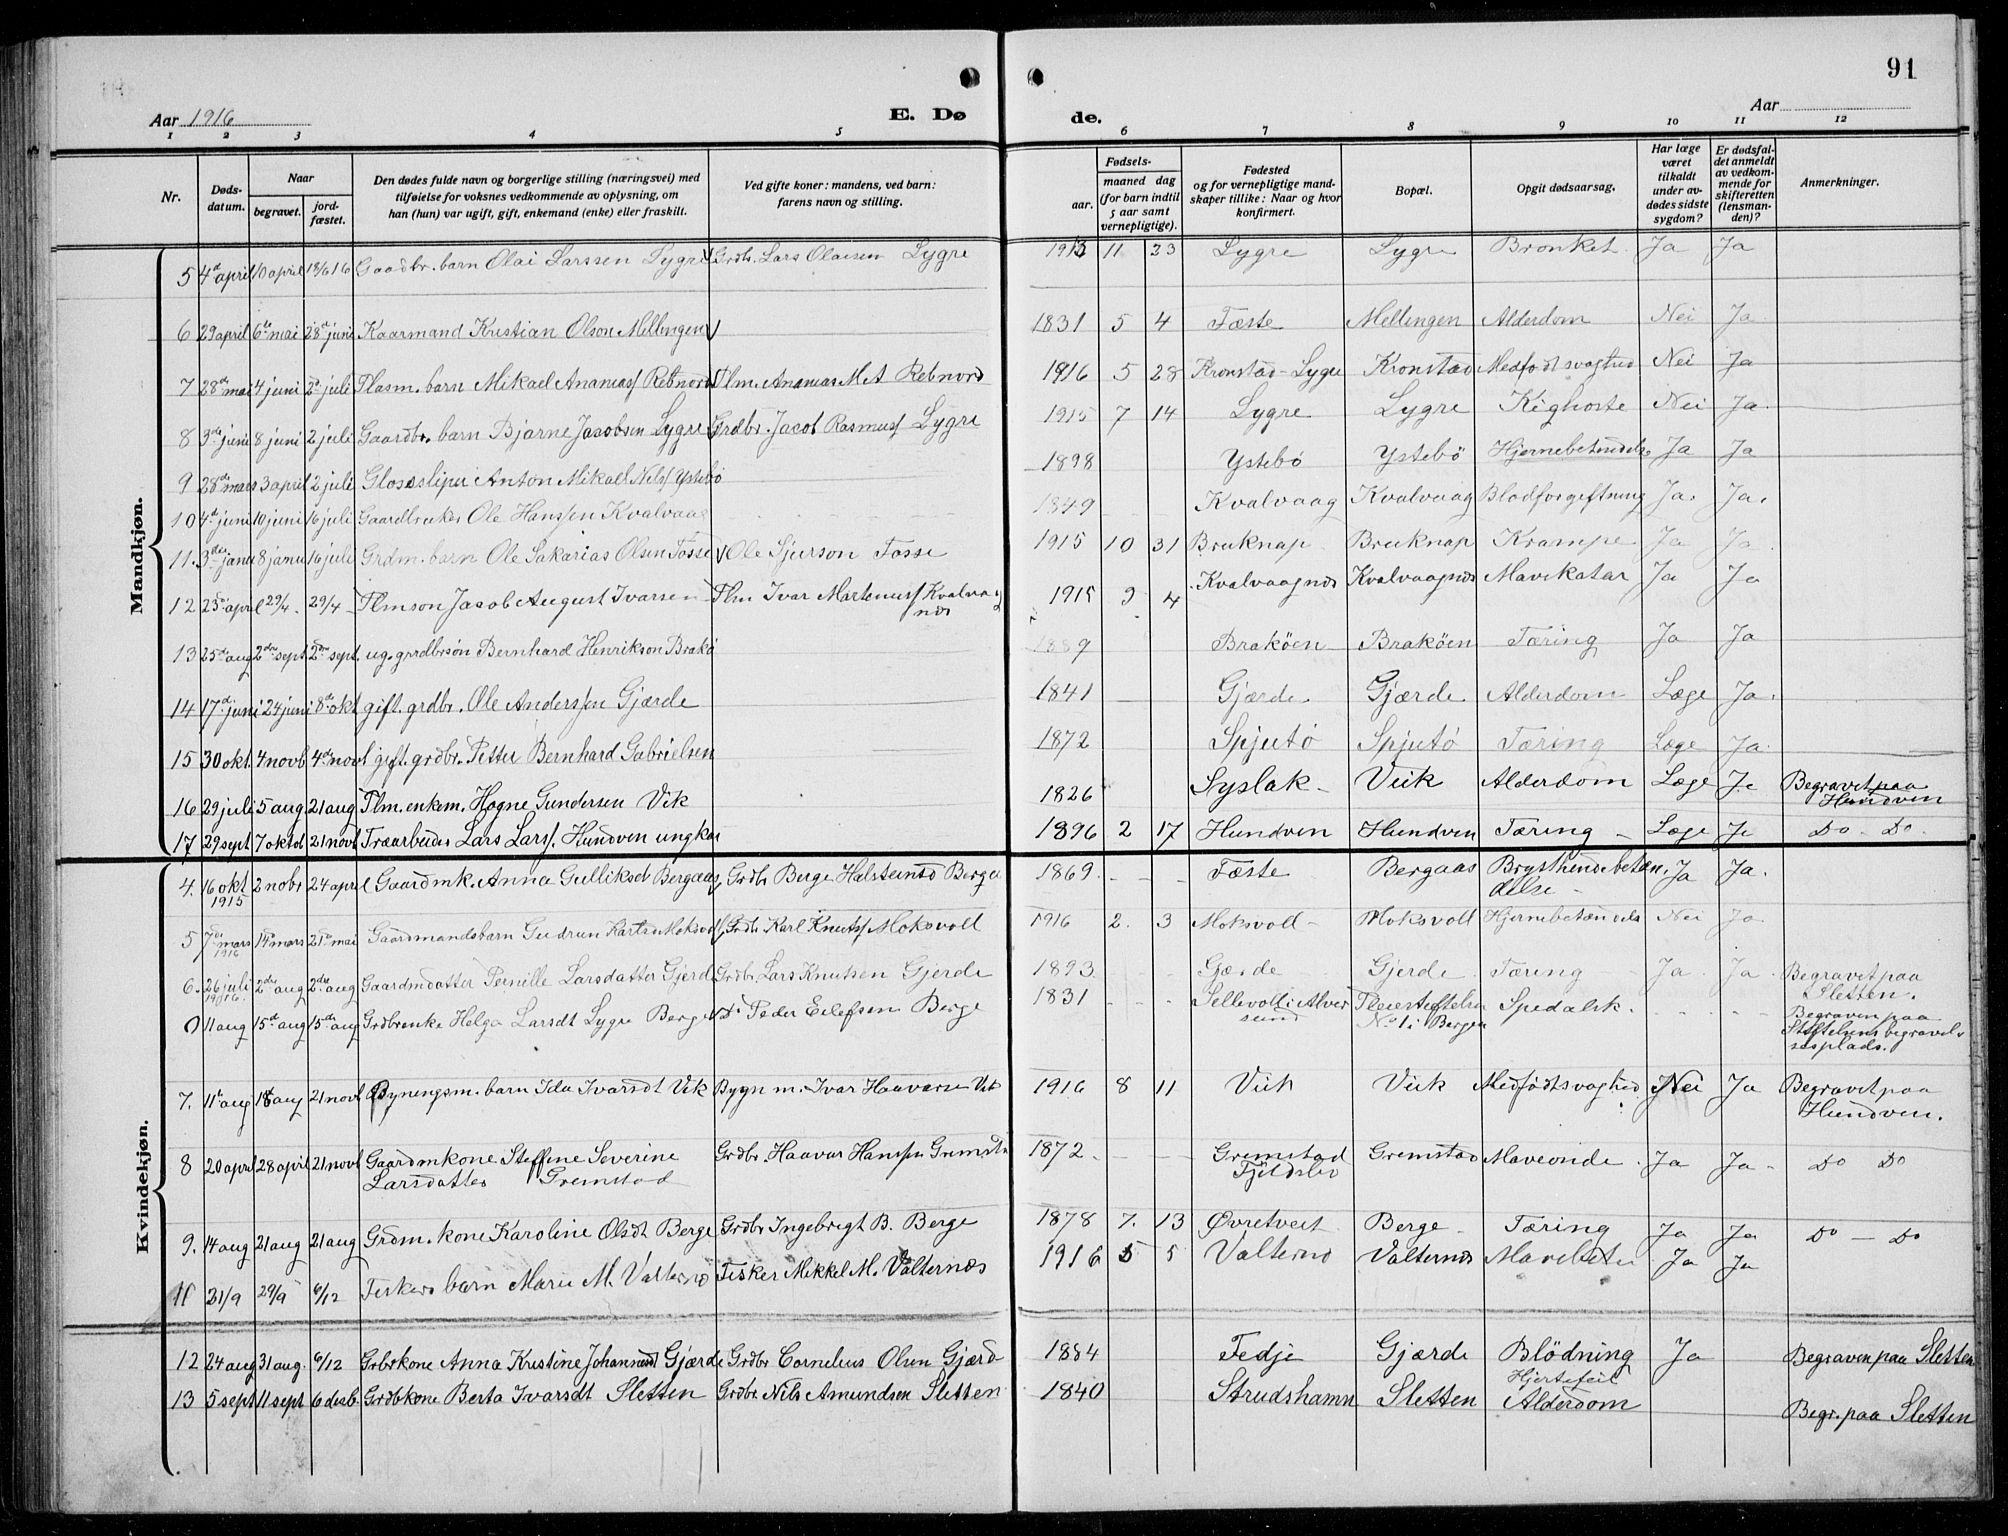 91
Aar 1916
E. Dø
de.
Aar
1 2 3 4 5 6 7 8 9 10 11 12
Nr.
Døds-
datum.
Naar
begravet.
jord-
fæstet.
Den dødes fulde navn og borgerlige stilling (næringsvei) med
tilføielse for voksnes vedkommende av oplysning, om
han (hun) var ugift, gift, enkemand (enke) eller fraskilt.
Ved gifte koner: mandens, ved barn:
farens navn og stilling.
Fødsels-
aar.
maaned dag
(for barn indtil
5 aar samt
vernepligtige).
Fødested
og for vernepligtige mand-
skaper tillike: Naar og hvor
konfirmert.
Bopæl.
Opgit dødsaarsag.
Har læge
været
tilkaldt
under av-
dødes sidste
sygdom?
Er dødsfal-
det anmeldt
av vedkom-
mende for
skifteretten
(lensman-
den)?
Anmerkninger.
Mandkjøn.
5 4de april 10 april 18/6 16 Gaardbr. barn Olai Larssen Lygre Grdb. Lars Olaisen Lygre 1913 11 23 Lygre Lygre Bronket. Ja Ja
6 29 april 6te mai 28de juni Kaarmand Kristian Olson Mellingen 1831 5 4 Fæste Mellingen Alderdom Nei Ja
7 28de mai 4 juni 2d. juli Flasm. barn Mikael Ananias/ Rebnord Flm. Ananias M. A Rebnord 1916 5 28 Kronstad-Lygre Kronstad Medfødt svaghed Nei Ja
8 3die juni 8 juni 2 juli Gaardbr. barn Bjarne Jacobsen Lygre Grdbr. Jacob Rasmus/ Lygre 1915 7 14 Lygre Lygre Kighoste Nei Ja
9 28de mars 3 april 2 juli Glasssliper Anton Mikael Nils/ Ystebø 1898 Ystebö Ystebö Hjernebetendelse Ja Ja
10 4de juni 10 juni 16 juli Gaardbruker Ole Hanssen Kvalvaag 1849 Kvalvaag Kvalvaag Blodforgiftning Ja. Ja.
11. 3die janu 8 janu 16 juli Grdm. barn Ole Sakarias Olsen Fosse Ole Sjurson Fosse 1915 10 31 Bruknap Bruknap Krampe Ja Ja
12 23de april 29/4 29/4 Flmson Jacob August Ivarsen Flm Ivar Martenus/ Kvalvaag
nes 1915 9 4 Kvalvaagnes Kvalvaagnes Mavekatar Ja Ja
13 25de aug 2den sept 2den sept. ug. grdbrsön Bernhard Henrikson Brakö 1889 Braköen Braköen Tæring Ja Ja
14 17de juni 24 juni 8de okt gift. grdbr. Ole Anderssen Gjærde 1841 Gjærde Gjærde Alderdom Læge Ja.
15 30 okt. 4 novb 4de novb gift. grdbr. Petter Bernhard Gabrielsen 1872 Spjutö Spjutö Tæring Læge Ja.
16 29 juli 5 aug 21 aug Flm. enkem. Hogne Gundersen Vik 1826 Syslak Viik Alderdom Læge Ja Begravet paa
Hundven
17 29 sept 7 oktob 21 novb Træarbeider Lars Lars/. Hundven ungkar 1896 2 17 Hundven Hundven Tæring Læge Ja Do - Do
Kvindekjøn.
4. 16 okt
1915 2 nobr 24 april Gaardmk. Anna Gulliksd Bergaas Grdbr Berge Halsteinsd Berga 1869 Fæste Bergaas Brysthindebetæn
delse Ja Ja.
5 7de mars
1916 14de mars 21de mai Gaardmandsbarn Gudrun Karlsd Moksvoll Grdb. Karl Knuts/ Moksvoll 1916 2. 3 Moksvoll Moksvoll Hjernebetændels Nei Ja
6. 26 juli
1916 2den aug 2den aug Gaardmdatter Pernille Larsdatter Gjerde Grdbr. Lars Knutsen Gjerde 1893 Gjærde Gjerde Tæring Ja Ja. Begravet paa
Sletten.
0 11 aug 15de aug 15de aug Grdbrenke Helga Larsdt Lygre Berge Do Peder Eilefsen Berge 1831 Sellevoll i Alver
sund Pleiestiftelsen
No 1 i Bergen Spedalsk. Begraven paa
Stiftelsens begravel-
sesplads.
7. 11te aug 18de aug 21 novb Bynengsm. barn Ida Ivarsdt Vik Bygn m. Ivar Haavarse Vik 1916 8 11 Viik Viik Medfödtsvaghed Nei Ja Begravet paa
Hundven.
8 20 april 28 april 21 novb Gaardmkone Steffine Severine
Larsdatter Gremstad Grdbr. Haavar Hanssen Gremstd 1872 Gremstad
Fjeldsbö Gremstad Maveonde Ja Ja Do Do
9. 14 aug 21 aug 21 aug Grdm. kone Karoline Olsdt Berge Grdbr Ingebrigt B. Berge 1878 7. 13 Øvretveit Berge Tæring Ja Ja Do - Do
11 21/9 29/9 6/12 Fiskers barn Marie M. Valternes Fisker Mikkel M. Valternæs 1916 5 5 Valternes Valternes Mavebet Ja Ja
12 24 aug 31 aug. 6/12 Grbrkone Anna Kristine Johannesdt Gjærde Grdbr Cornelius Olsen Gjærd 1884 Fedje Gjærde Blödning Ja Begraven paa Sletten
13 5 sept 11 sept 6 desb. Grdbkone Berta Ivarsdt Sletten Grdbr. Nils Amundsen Sletten 1840 Strudshamn Sletten Hjertefeil
Alderdom Begr. paa Sletten